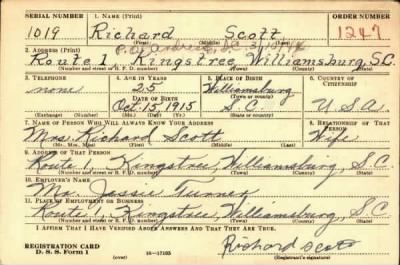 SERIAL NUMBER 1. NAME (Print) ORDER NUMBER
1019 Richard Scott 1247
(First) (Middle) (Last)
2. ADDRESS (Print)
Route 1 Kingstree Williamsburg, S.C.
(Number and street or R. F. D. number) (Town) (County) (State)
3. TELEPHONE 4. AGE IN YEARS 5. PLACE OF BIRTH 6. COUNTRY OF CITIZENSHIP
none 25 Williamsburg
DATE OF BIRTH (Town or county)
Oct. 15, 1915 S.C. U.S.A.
(Exchange) (Number) (Mo.) (Day) (Yr.) (State or country)
7. NAME OF PERSON WHO WILL ALWAYS KNOW YOUR ADDRESS 8. RELATIONSHIP OF THAT PERSON
Mrs. Richard Scott Wife
(Mr., Mrs., Miss) (First) (Middle) (Last)
9. ADDRESS OF THAT PERSON
Route 1, Kingstree, Williamsburg, S.C.
(Number and street or R. F. D. number) (Town) (County) (State)
10. EMPLOYER'S NAME
Mr. Jessie Turner
11. PLACE OF EMPLOYMENT OR BUSINESS
Route 1, Kingstree, Williamsburg, S.C.
(Number and street or R. F. D. number) (Town) (County) (State)
I AFFIRM THAT I HAVE VERIFIED ABOVE ANSWERS AND THAT THEY ARE TRUE.
REGISTRATION CARD
D. S. S. Form 1 (over) 16—17105 Richard Scott
(Registrant's signature)